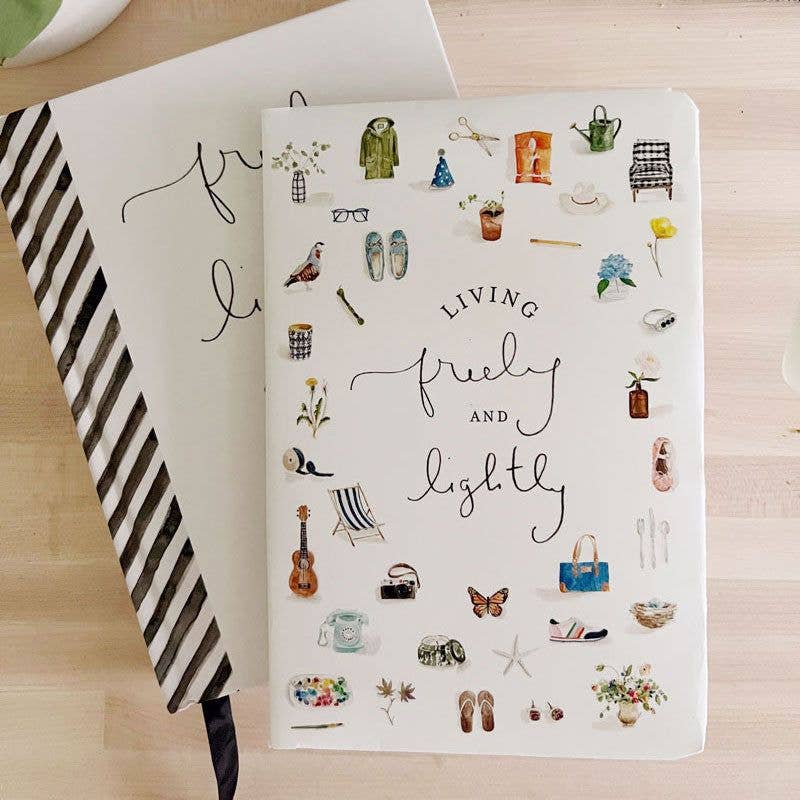 LIVING
freely
AND
lightly